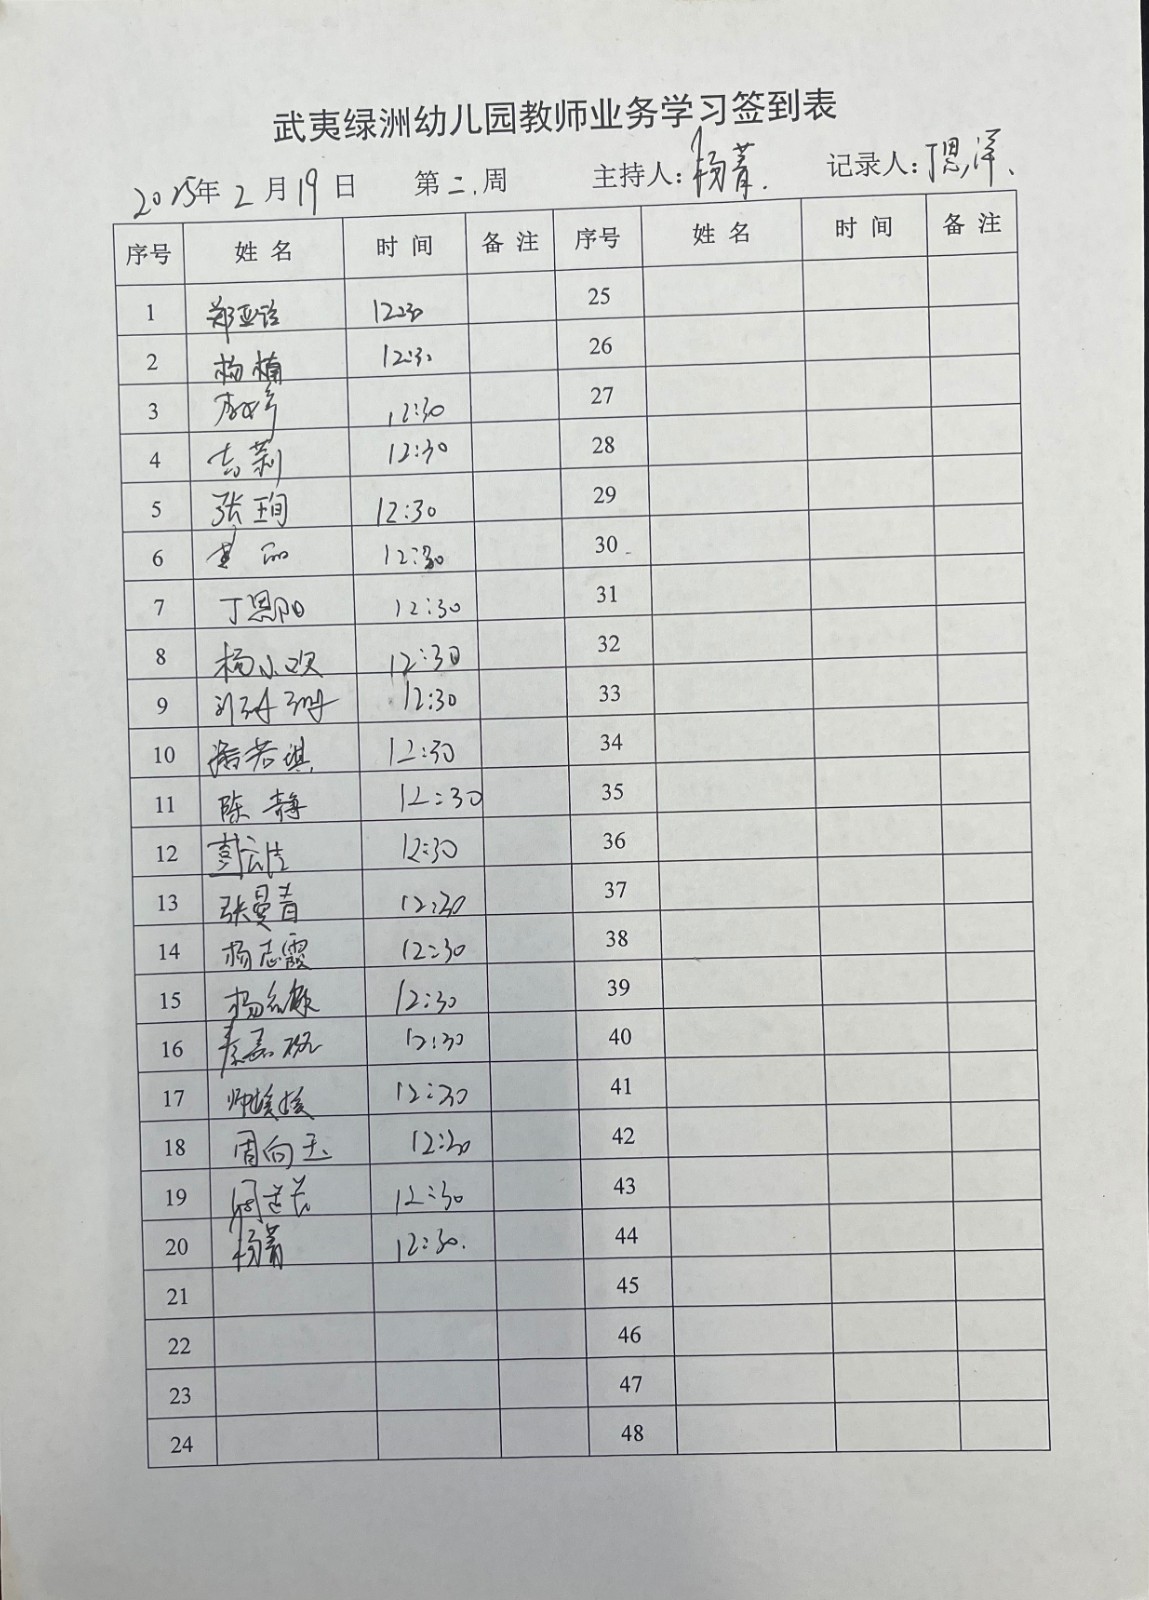 武夷绿洲幼儿园教师业务学习签到表
2025年2月19日 第二.周 主持人:杨菁. 记录人:丁思洋、
序号 姓名 时间 备注 序号 姓名 时间 备注
1 郑亚 12:30 25
2 杨楠 12:30 26
3 12:30 27
4 吉莉 12:30 28
5 张珣 12:30 29
6 黄丽 12:30 30
7 丁思阳 12:30 31
8 杨小欢 12:30 32
9 刘珊珊 12:30 33
10 潘若琪 12:30 34
11 陈静 12:30 35
12 彭云佳 12:30 36
13 张曼青 12:30 37
14 杨志霞 12:30 38
15 杨 12:30 39
16 秦嘉 12:30 40
17 帅媛媛 12:30 41
18 周向玉 12:30 42
19 周 12:30 43
20 杨菁 12:30. 44
21 45
22 46
23 47
24 48